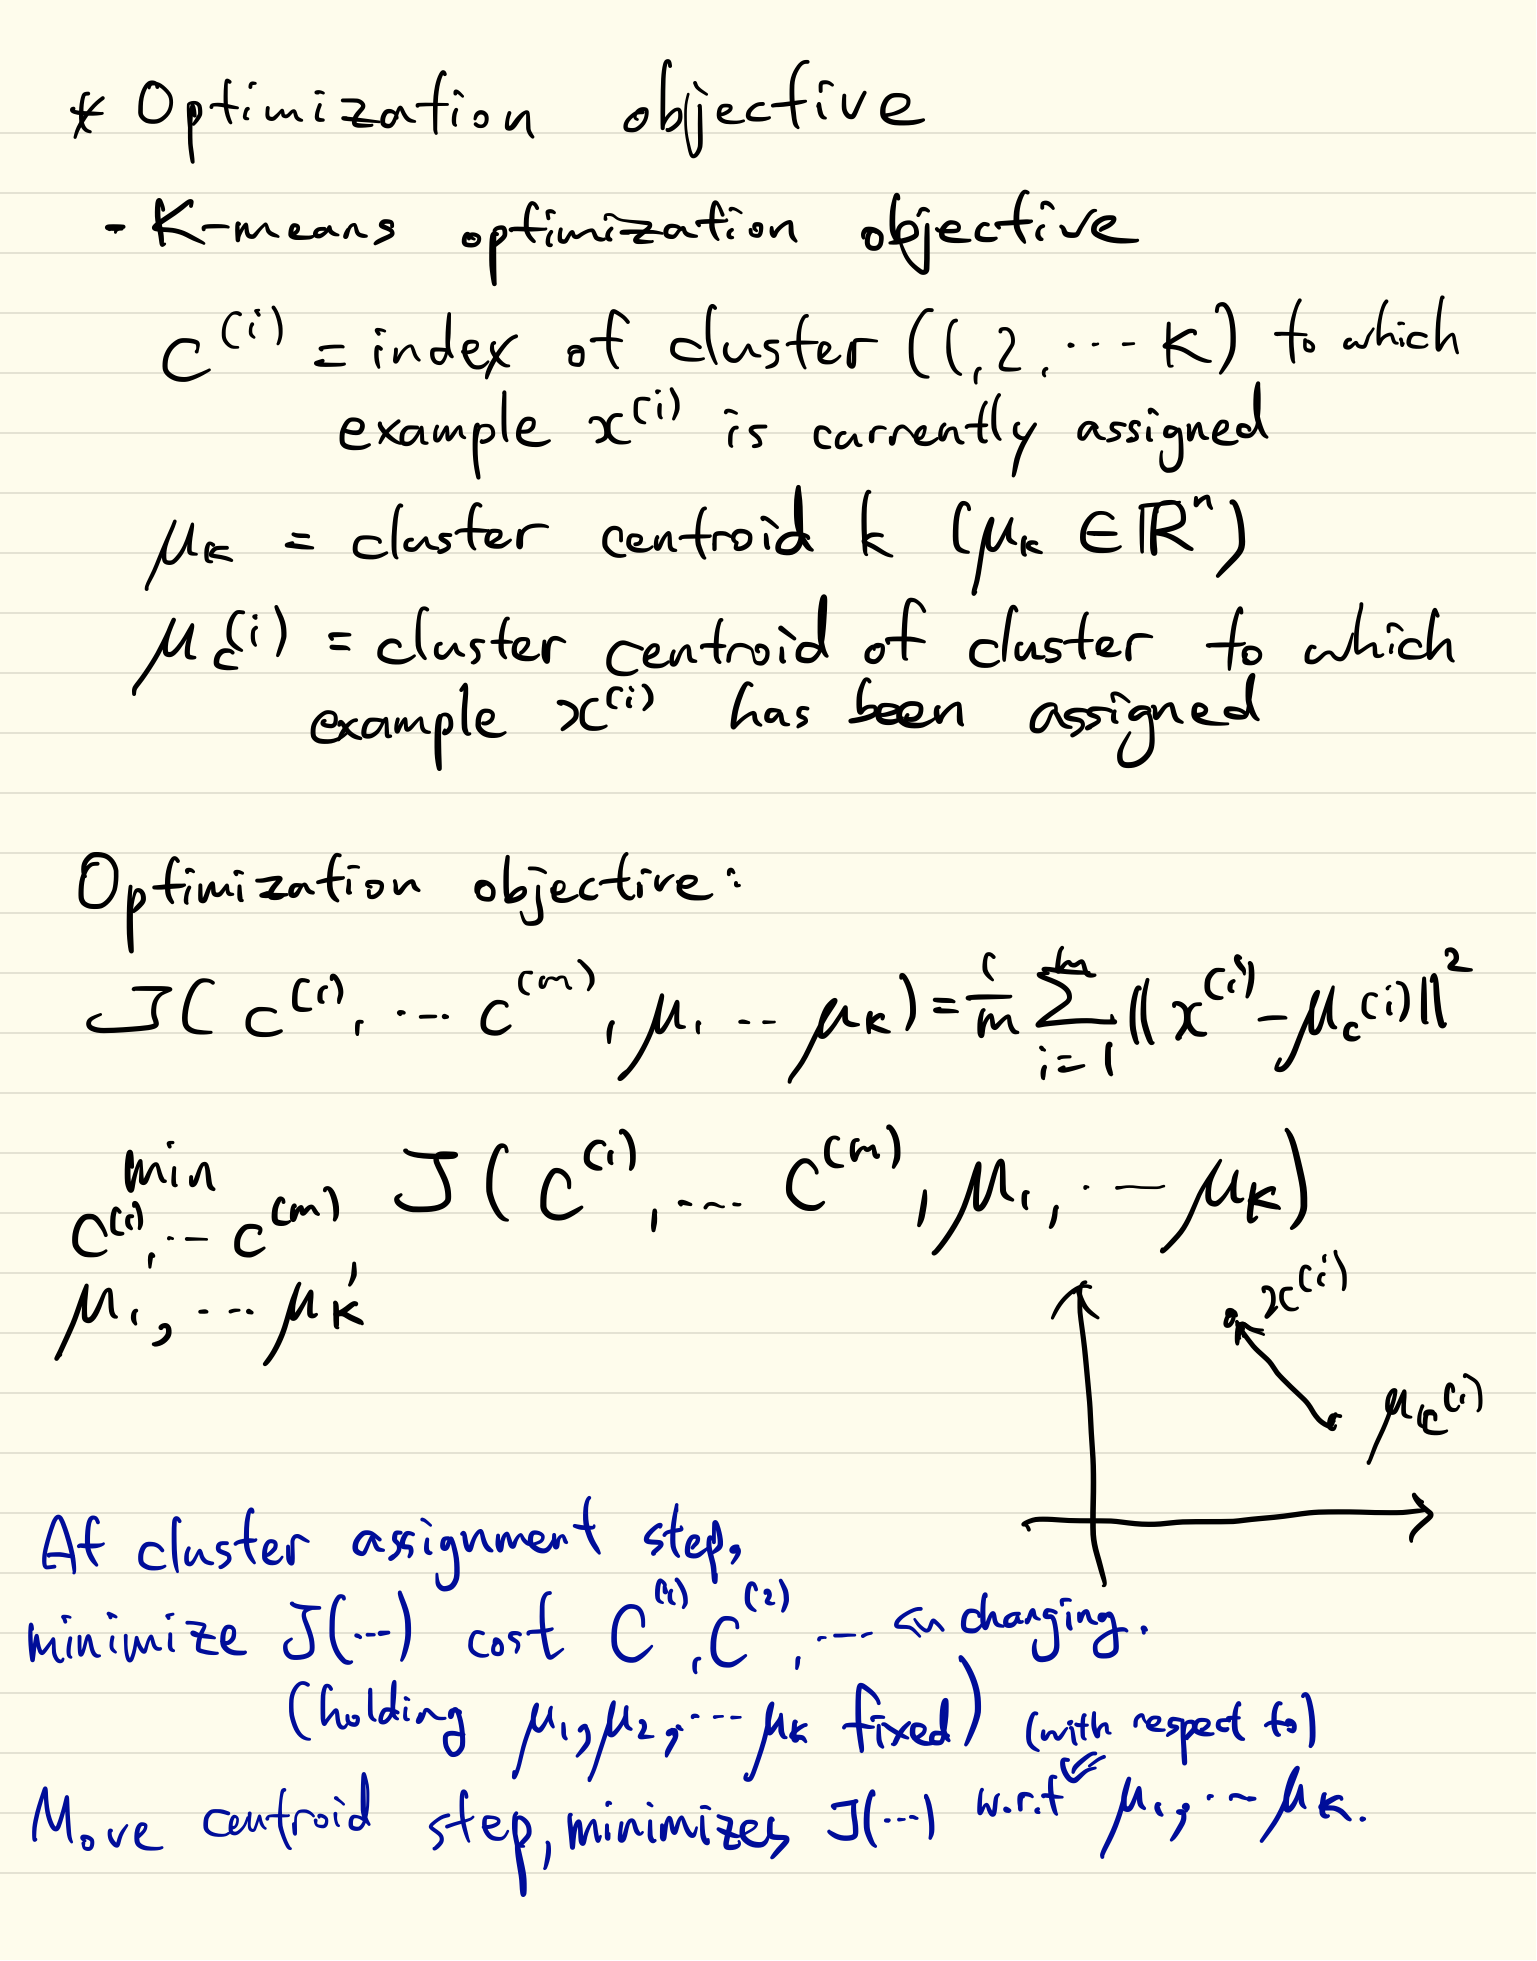 * Optimization objective
- K-means optimization objective
C^(i) = index of cluster (1,2, ... K) to which
example x^(i) is currently assigned
μ_k = cluster centroid k (μ_k ∈ ℝ^n)
μ_c^(i) = cluster centroid of cluster to which
example x^(i) has been assigned
Optimization objective:
J( c^(1), ... c^(m), μ_1 ... μ_K ) = 1/m Σ_{i=1}^{m} || x^(i) - μ_c^(i) ||^2
min J( C^(1), ... C^(m), μ_1, ... μ_K )
C^(1), ... c^(m),
μ_1, ... μ_K
x^(i)
μ_c^(i)
At cluster assignment step,
minimize J(...) cost C^(1), C^(2), ... changing.
(holding μ_1, μ_2, ... μ_K fixed) (with respect to)
Move centroid step, minimizes J(...) w.r.t μ_1, ... μ_K.